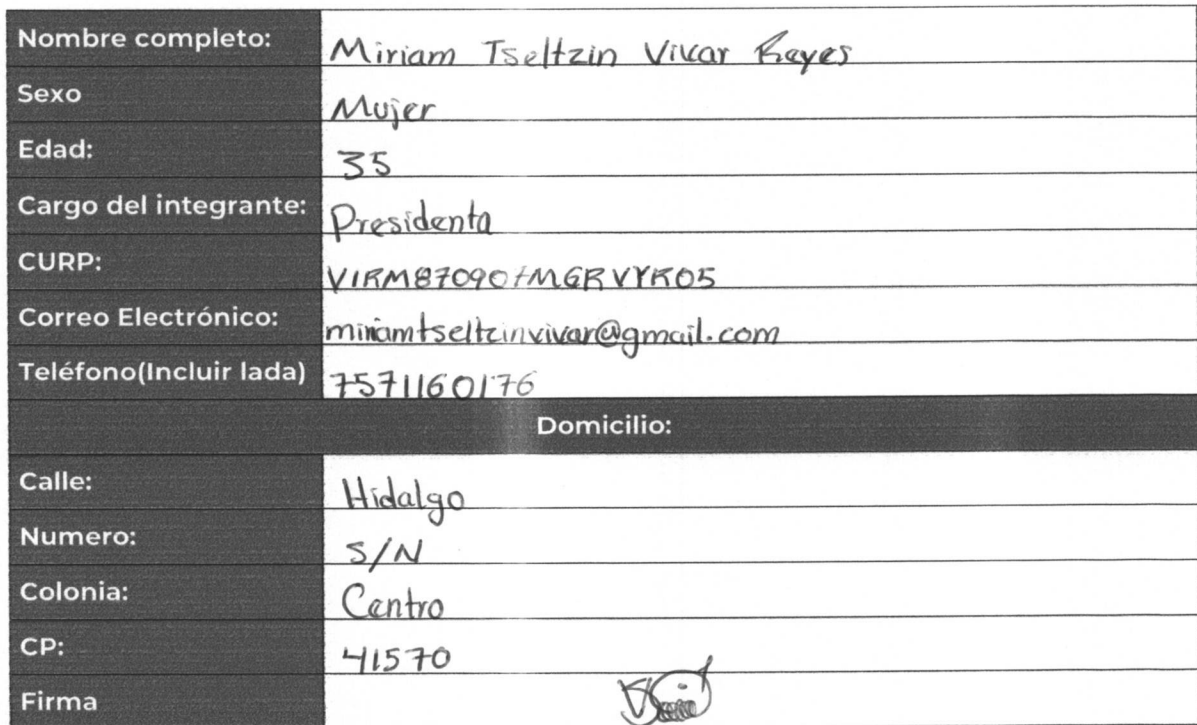 Nombre completo: Miriam Tseltzin Vivar Reyes
Sexo Mujer
Edad: 35
Cargo del integrante: Presidenta
CURP: VIRM870907MGRVYR05
Correo Electrónico: miriamtseltzinvivar@gmail.com
Teléfono(Incluir lada) 7571160176
Domicilio:
Calle: Hidalgo
Numero: S/N
Colonia: Centro
CP: 41570
Firma